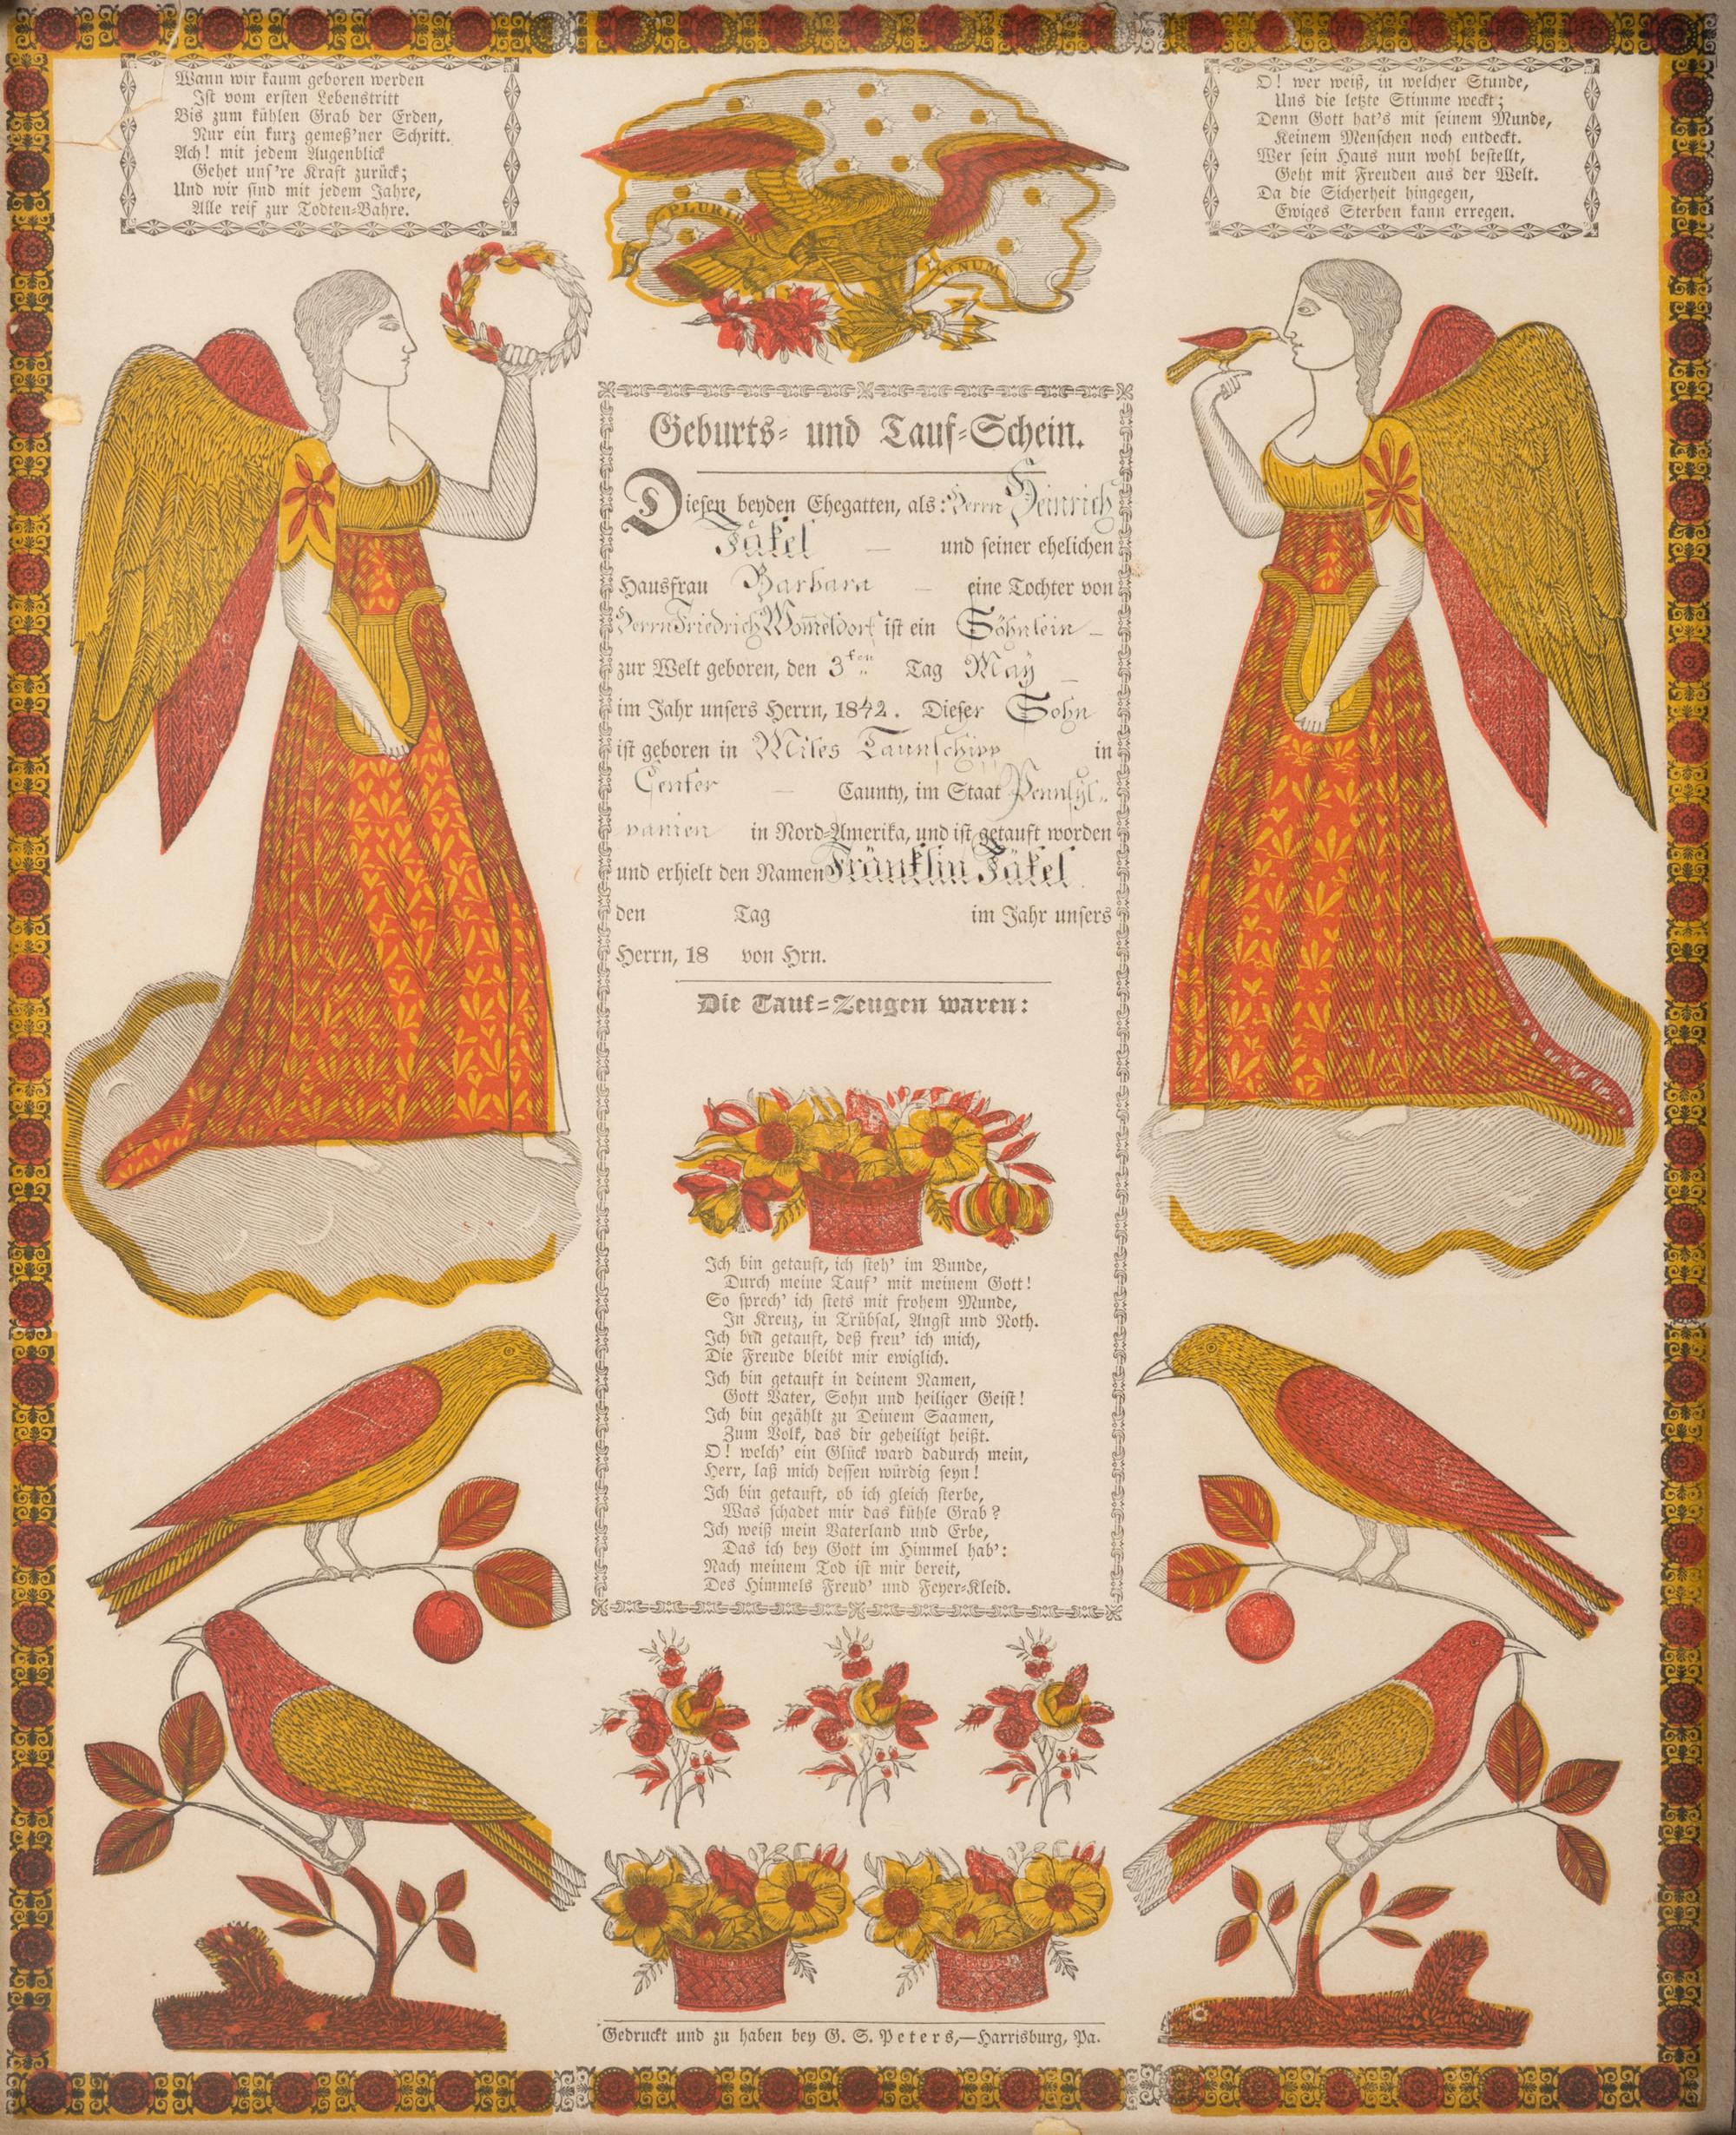 Wann wir kaum geboren werden
Ist vom ersten Lebenstritt
Bis zum kühlen Grab der Erden,
Nur ein kurz gemeß'ner Schritt.
Ach! mit jedem Augenblick
Gehet uns're Kraft zurück;
Und wir sind mit jedem Jahre,
Alle reif zur Todten-Bahre.
PLURIBUS
UNUM
O! wer weiß, in welcher Stunde,
Uns die letzte Stimme weckt;
Denn Gott hat's mit seinem Munde,
Keinem Menschen noch entdeckt.
Wer sein Haus nun wohl bestellt,
Geht mit Freuden aus der Welt.
Da die Sicherheit hingegen,
Ewiges Sterben kann erregen.
Geburts- und Tauf-Schein.
Diesen beyden Ehegatten, als: Herrn Heinrich
Jäkel — und seiner ehelichen
Hausfrau Barbara — eine Tochter von
Herrn Friedrich Wom̄eldorf ist ein Söhnlein —
zur Welt geboren, den 3ten Tag May —
im Jahr unsers Herrn, 1842. Dieser Sohn
ist geboren in Miles Taunschipp in
Center — Caunty, im Staat Pennsyl-
vanien in Nord-Amerika, und ist getauft worden
und erhielt den Namen Fränklin Jäkel.
den Tag im Jahr unsers
Herrn, 18 von Hrn.
Die Tauf-Zeugen waren:
Ich bin getauft, ich steh' im Bunde,
Durch meine Tauf' mit meinem Gott!
So sprech' ich stets mit frohem Munde,
In Kreuz, in Trübsal, Angst und Noth.
Ich bin getauft, deß freu' ich mich,
Die Freude bleibt mir ewiglich.
Ich bin getauft in deinem Namen,
Gott Vater, Sohn und heiliger Geist!
Ich bin gezählt zu Deinem Saamen,
Zum Volk, das dir geheiligt heißt.
O! welch' ein Glück ward dadurch mein,
Herr, laß mich dessen würdig seyn!
Ich bin getauft, ob ich gleich sterbe,
Was schadet mir das kühle Grab?
Ich weiß mein Vaterland und Erbe,
Das ich bey Gott im Himmel hab':
Nach meinem Tod ist mir bereit,
Des Himmels Freud' und Feyer-Kleid.
Gedruckt und zu haben bey G. S. Peters,—Harrisburg, Pa.